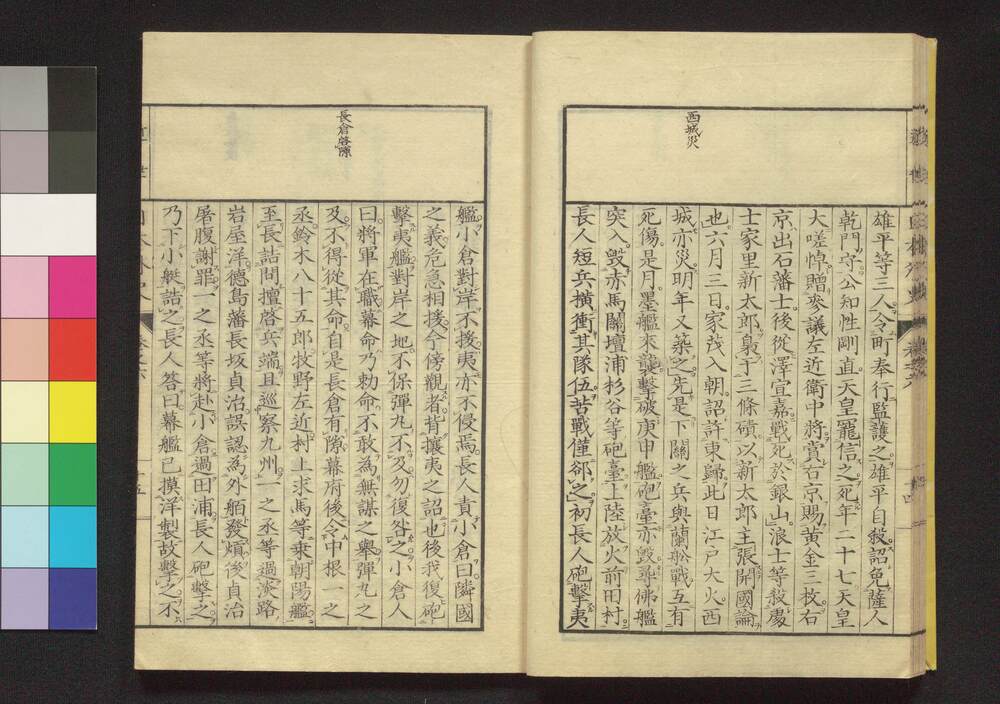 西城災
雄平等三人令町奉行監護之雄平自殺詔免薩人
乾門守公知性剛直天皇寵信之死年二十七天皇
大嗟悼贈參議左近衛中將賞右京賜黄金三枚右
京出石藩士後從澤宣嘉戰死於銀山浪士等殺慶
士家里新太郎梟于三條磧以新太郎主張開國論
也六月三日家茂入朝詔許東歸此日江戸大火西
城亦災明年又築之先是下關之兵與蘭船戰互有
死傷是月墨艦來襲擊破庚申艦砲臺亦毀尋佛艦
突入毀赤馬關壇浦杉谷等砲臺上陸放火前田村
長人短兵横衝其隊伍苦戰僅郤之初長人砲擊夷
長倉啓隙
艦小倉對岸不援夷亦不侵焉長人責小倉曰隣國
之義危急相援今傍觀者背攘夷之詔也後我復砲
擊夷艦對岸之地不保彈丸不及勿復咎之小倉人
曰將軍在職幕命乃勅命不敢為無謀之舉彈丸之
及不得從其命自是長倉有隙幕府後令中根一之
丞鈴木八十五郎牧野左近村上求馬等乘朝陽艦
至長詰問擅啓兵端且巡察九州一之丞等過淡路
岩屋洋德島藩長坂貞治誤認為外舶發熕後貞治
屠腹謝罪一之丞等將赴小倉過田浦長人砲擊之
乃下小艇詰之長人答曰幕艦已摸洋製故擊之不